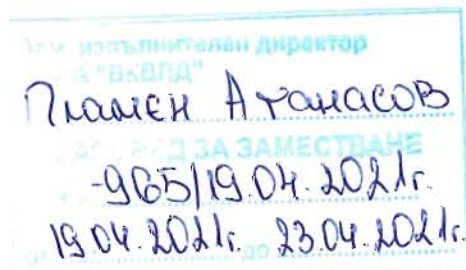 изпълнителен директор
"ВКВПД"
Пламен Атанасов
ЗА ЗАМЕСТВАНЕ
-965/19.04.2021г.
19.04.2021г. 23.04.2021г.
до